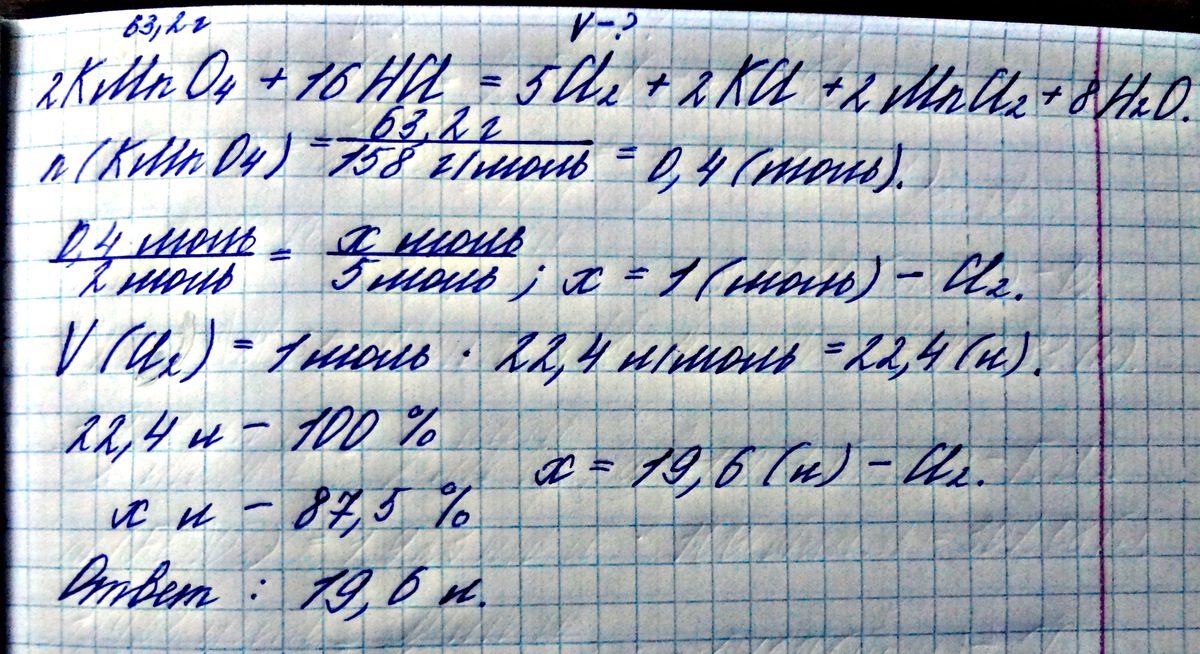 63,2 г V - ?
2KMnO4 + 16HCl = 5Cl2 + 2KCl + 2MnCl2 + 8H2O.
n(KMnO4) = 63,2 г / 158 г/моль = 0,4 (моль).
0,4 моль / 2 моль = x моль / 5 моль ; x = 1 (моль) - Cl2.
V(Cl2) = 1 моль · 22,4 л/моль = 22,4 (л).
22,4 л - 100 %
x = 19,6 (л) - Cl2.
x л - 87,5 %
Ответ : 19,6 л.